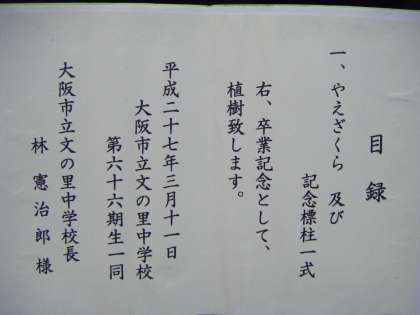 目録
一、やえざくら 及び
記念標柱一式
右、卒業記念として、
植樹致します。
平成二十七年三月十一日
大阪市立文の里中学校
第六十六期生一同
大阪市立文の里中学校長
林 憲治郎 様